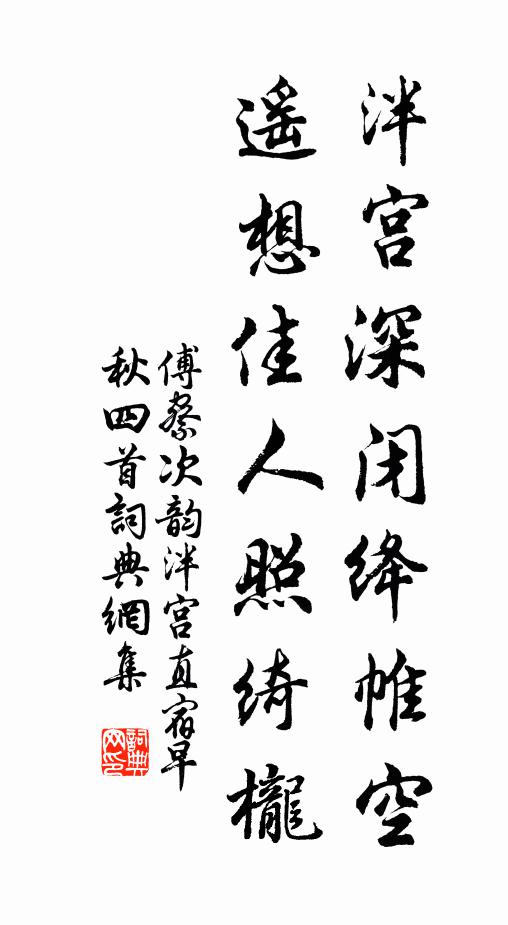 泮宫深闭绛帷空
遥想佳人照绮櫳
傅察次韵泮宫直宿早
秋四首詞典網集
詞典
网印